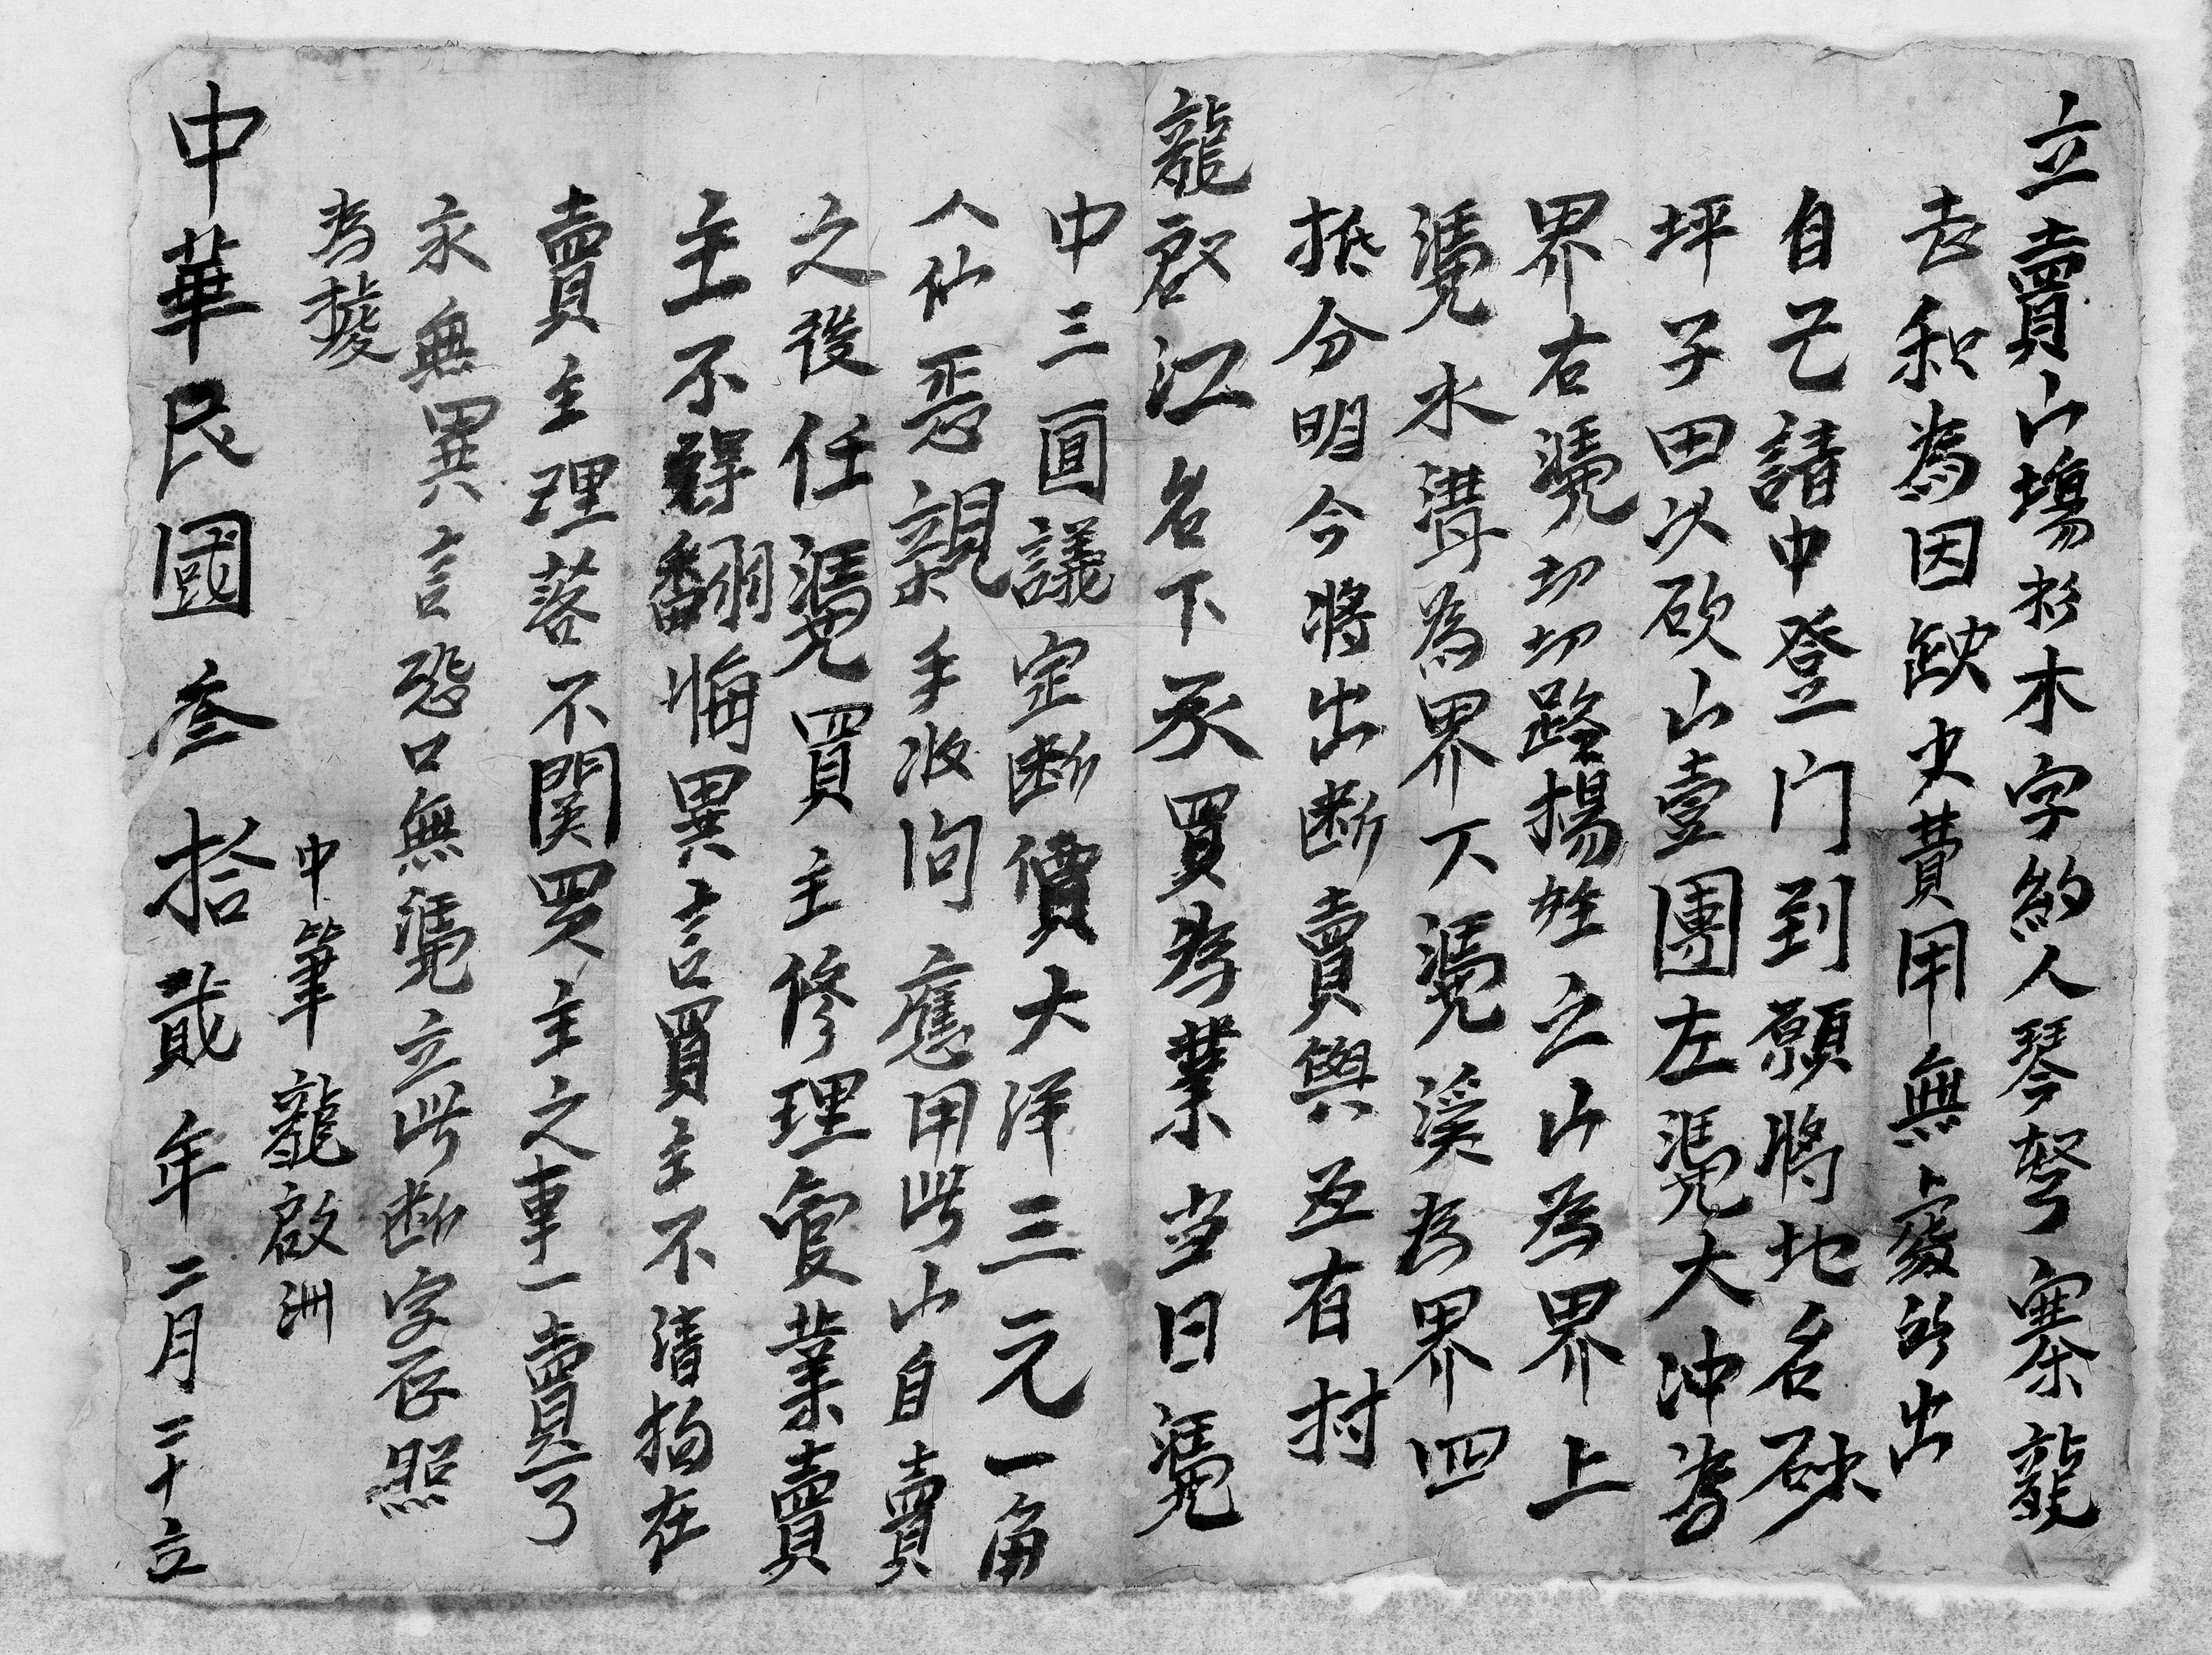 立賣山塲杉木字約人琴弩寨龍
志和為因缺少費用無處所出
自己請中登门到願將地名砍
坪子田以砍山壹團左凴大冲為
界右凴切切路揚姓之山為界上
凴水溝為界下凴溪為界四
抵分明今將出断賣與五有村
龍啓江名下承買為業当日凴
中三面議定断價大洋三元一角
人仙悉親手收向應用此山自賣
之後任凴買主修理管業賣
主不得翻悔異言買主不清拘在
賣主理落不関買主之事一賣了
永無異言恐口無凴立此断字存照
為據
中筆龍啟洲
中華民國叁拾貳年二月二十立